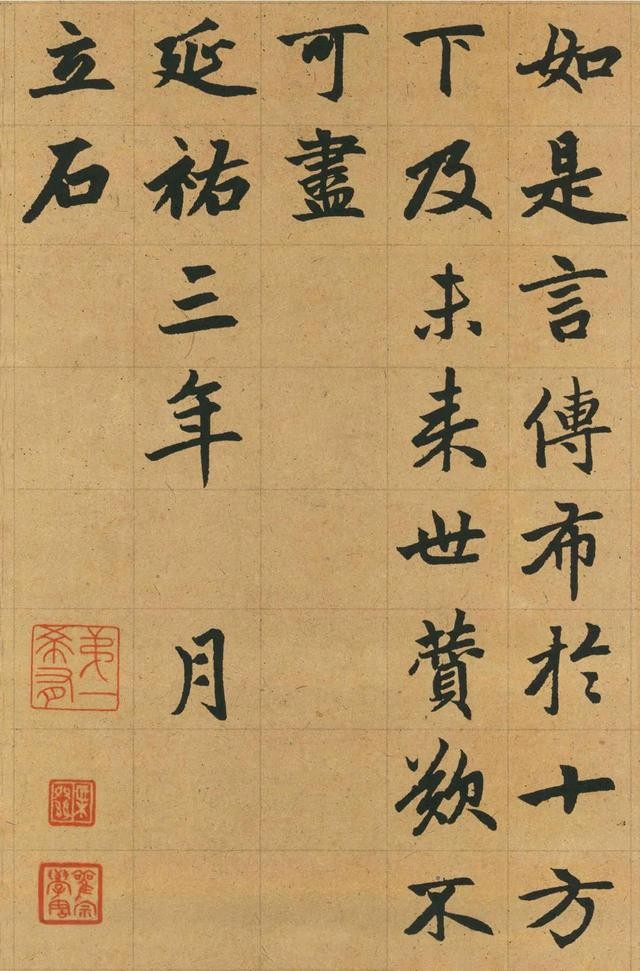 如是言傳布於十方
下及未来世賛歎不
可盡
延祐三年 月
立石